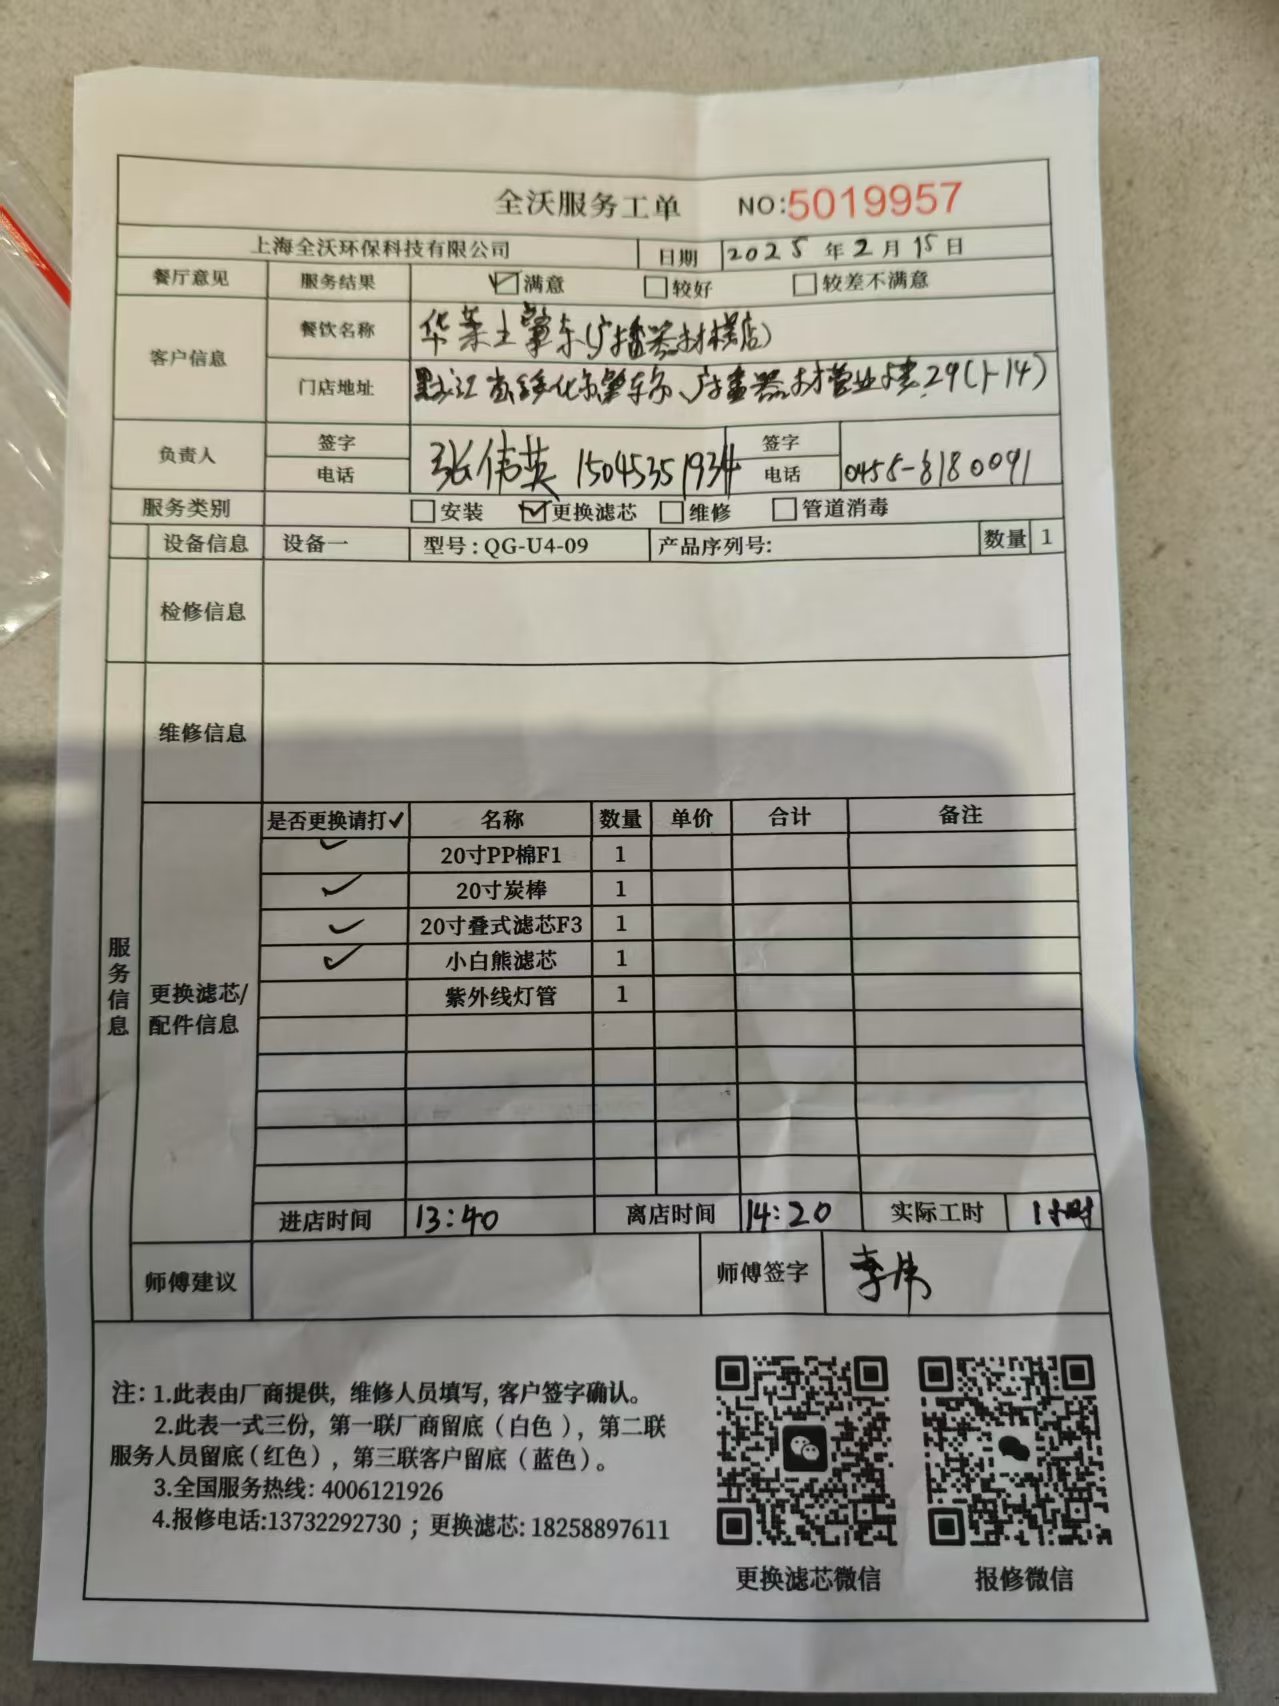 全沃服务工单 NO:5019957
上海全沃环保科技有限公司 日期 2025年2月15日
餐厅意见 服务结果 ☑满意 □较好 □较差不满意
客户信息 餐饮名称 华莱士肇东(广播器材楼店)
门店地址 黑龙江省绥化市肇东市广播器材营业楼29(1-14)
负责人 签字 张伟英 15045351934 签字
电话 电话 0455-8180091
服务类别 □安装 ☑更换滤芯 □维修 □管道消毒
设备信息 设备一 型号:QG-U4-09 产品序列号: 数量 1
检修信息
维修信息
服务信息
更换滤芯/配件信息
是否更换请打✓ 名称 数量 单价 合计 备注
✓ 20寸PP棉F1 1
✓ 20寸炭棒 1
✓ 20寸叠式滤芯F3 1
✓ 小白熊滤芯 1
紫外线灯管 1
进店时间 13:40 离店时间 14:20 实际工时 1小时
师傅建议 师傅签字 李伟
注:1.此表由厂商提供,维修人员填写,客户签字确认。
2.此表一式三份,第一联厂商留底(白色),第二联
服务人员留底(红色),第三联客户留底(蓝色)。
3.全国服务热线:4006121926
4.报修电话:13732292730;更换滤芯:18258897611
更换滤芯微信 报修微信